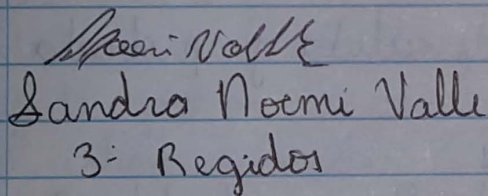 Noemi Valle
Sandra Noemi Valle
3- Regidos